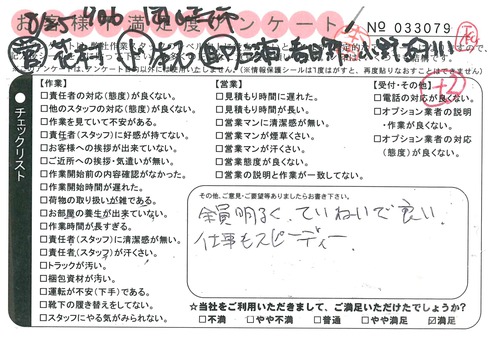 お客様不満足度アンケート
No 033079
チェックリスト
【作業】
□責任者の対応(態度)が良くない。
□他のスタッフの対応(態度)が良くない。
□作業を見ていて不安がある。
□責任者(スタッフ)に好感が持てない。
□お客様への挨拶が出来ていない。
□ご近所への挨拶・気遣いが無い。
□作業開始前の内容確認がなかった。
□作業開始時間が遅れた。
□荷物の取り扱いが雑である。
□お部屋の養生が出来ていない。
□作業時間が長すぎる。
□責任者(スタッフ)に清潔感が無い。
□責任者(スタッフ)が汗くさい。
□トラックが汚い。
□梱包資材が汚い。
□運転が不安(下手)である。
□靴下の履き替えをしてない。
□スタッフにやる気がみられない。
【営業】
□見積もり時間に遅れた。
□見積もり時間が長い。
□営業マンに清潔感が無い。
□営業マンが煙草くさい。
□営業マンが汗くさい。
□営業態度が良くない。
□営業の説明と作業が一致してない。
【受付・その他】
□電話の対応が良くない。
□オプション業者の説明
・作業が良くない。
□オプション業者の対応
(態度)が良くない。
その他、ご意見・ご要望等ありましたらお書き下さい。
全員明るく、ていねいで良い
仕事もスピーディー
☆当社をご利用いただきまして、ご満足いただけたでしょうか?
□不満 □やや不満 □普通 □やや満足 ☑満足